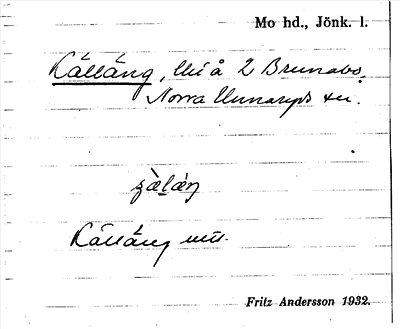 Mo hd., Jönk. l.
Källäng, lli å 2 Brunabo,
Norra Unnaryds sn.
Källäng
Fritz Andersson 1932.